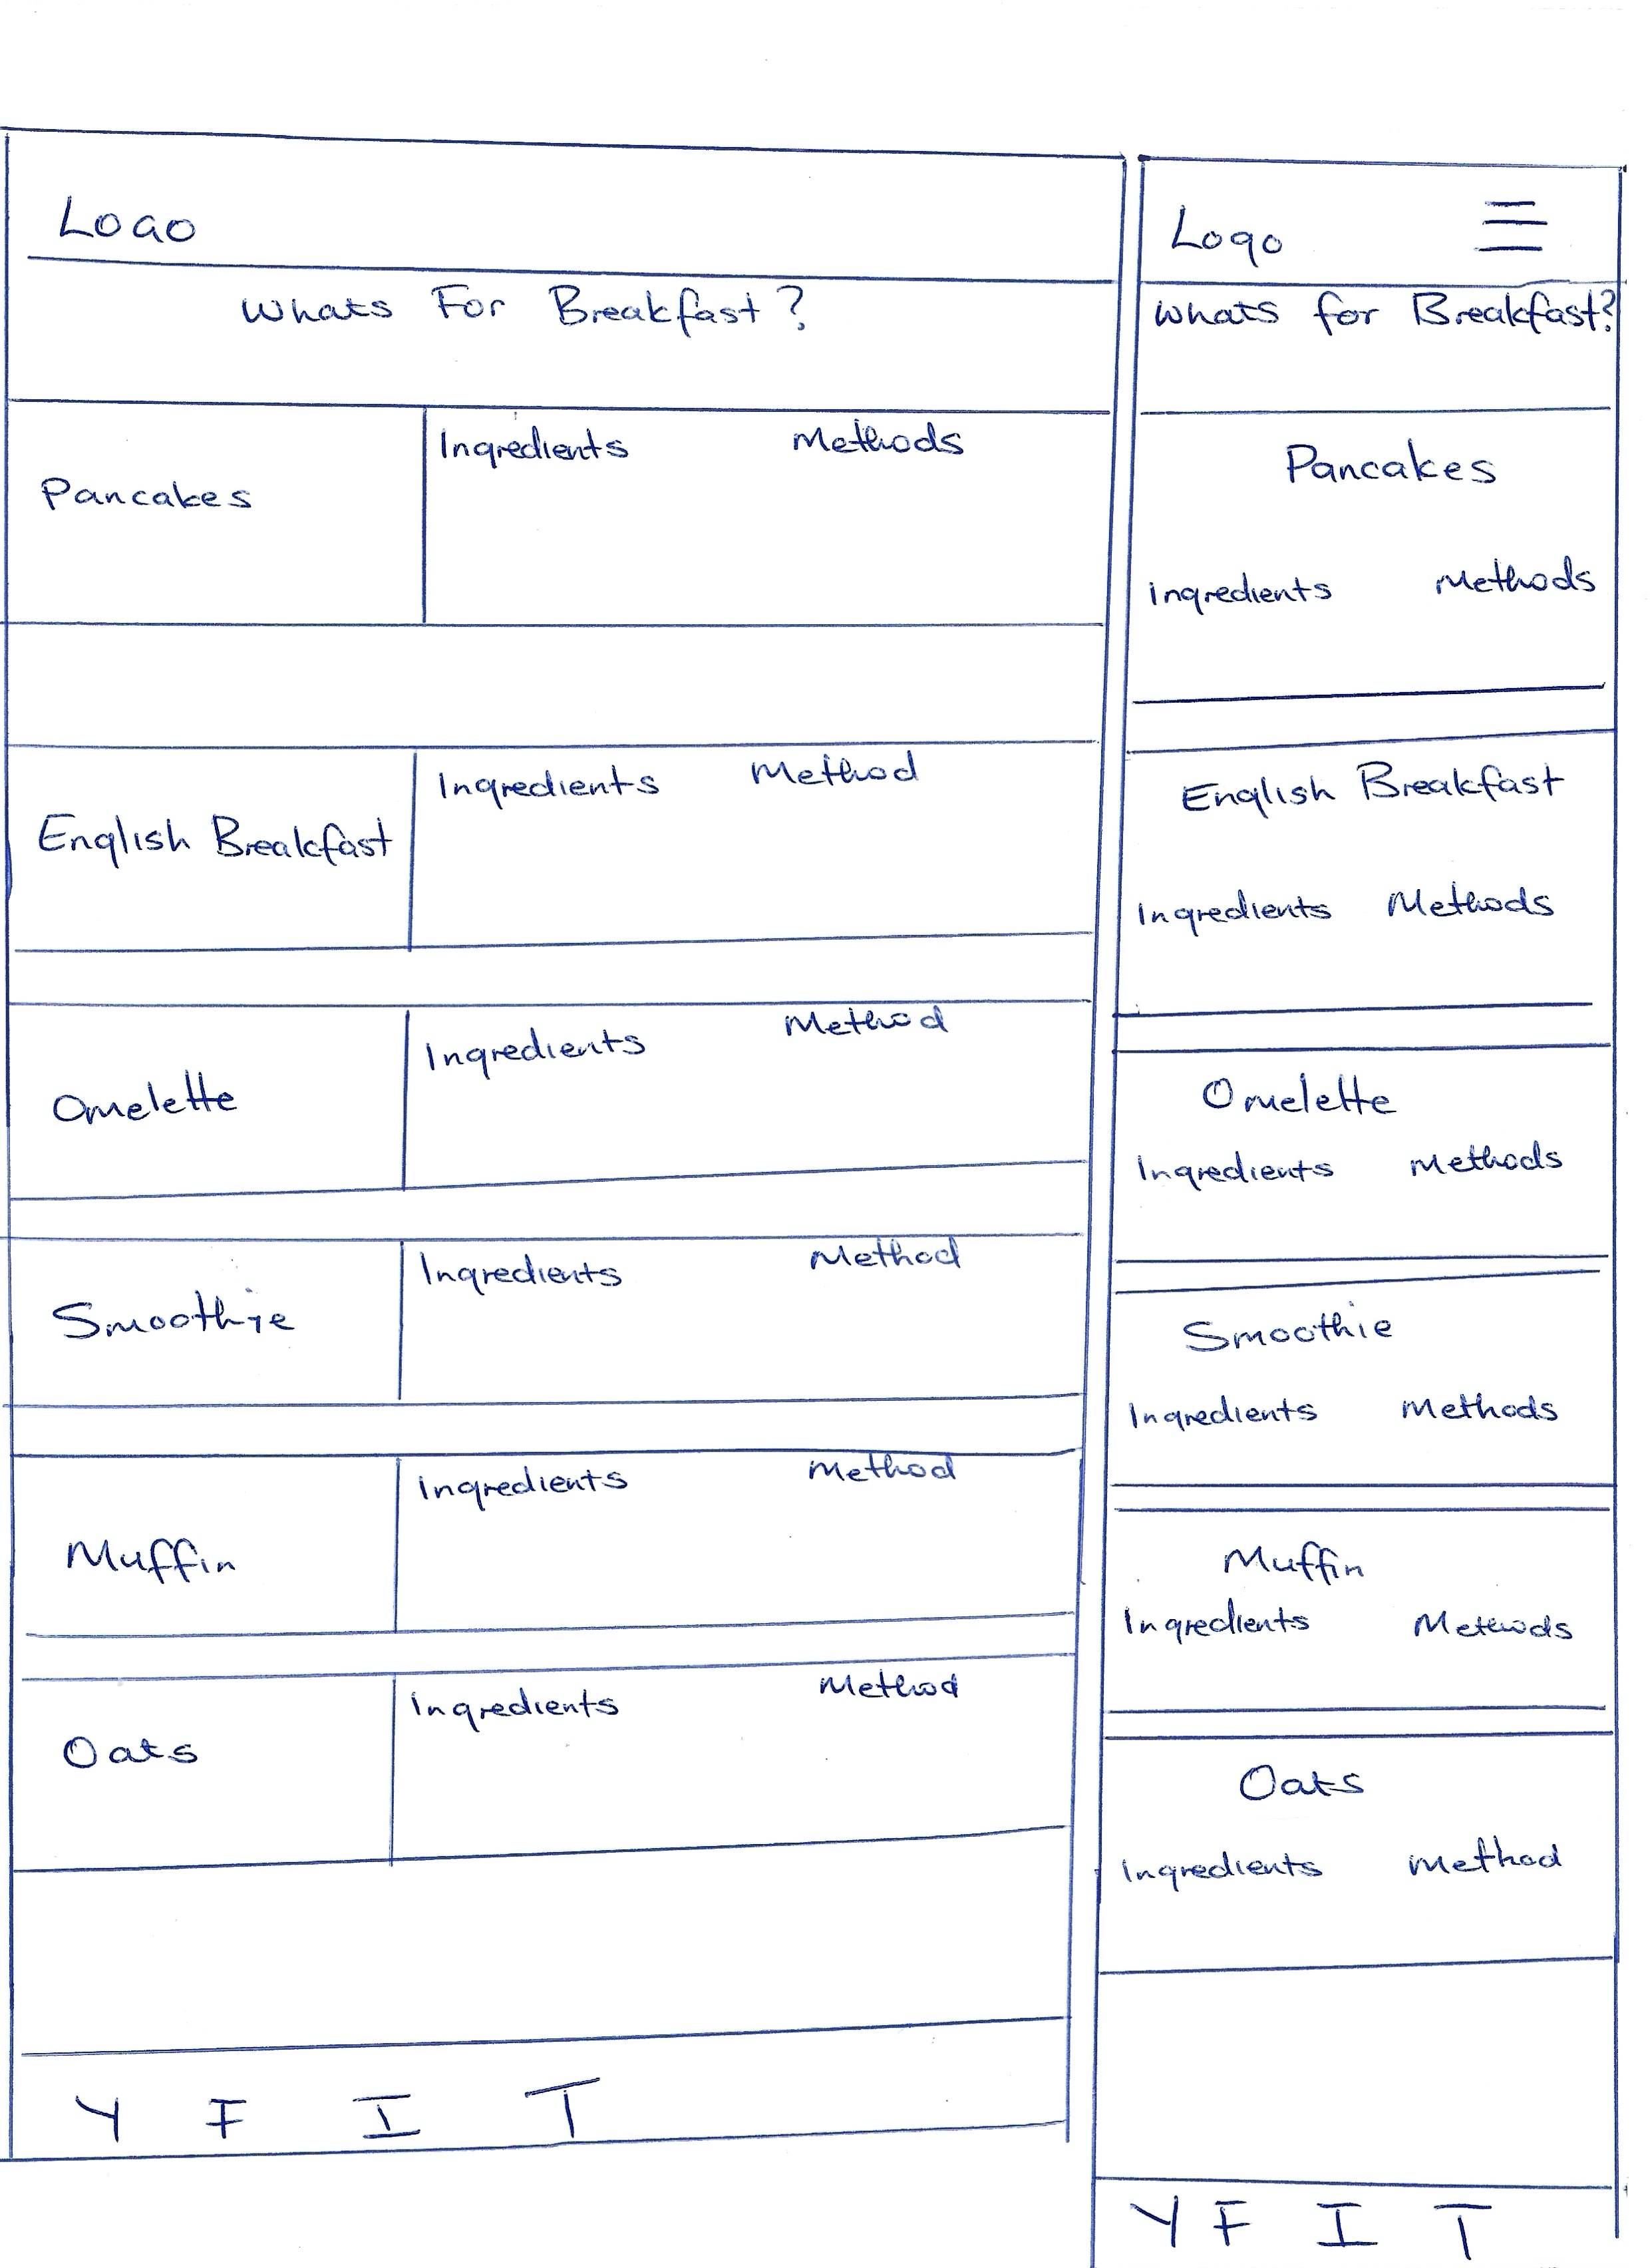 Logo
Whats For Breakfast?
Pancakes
Ingredients Methods
English Breakfast
Ingredients Method
Omelette
Ingredients Method
Smoothie
Ingredients Method
Muffin
Ingredients Method
Oats
Ingredients Method
Y F I T
Logo
whats for Breakfast?
Pancakes
ingredients Methods
English Breakfast
Ingredients Methods
Omelette
Ingredients Methods
Smoothie
Ingredients Methods
Muffin
Ingredients Methods
Oats
Ingredients Method
Y F I T